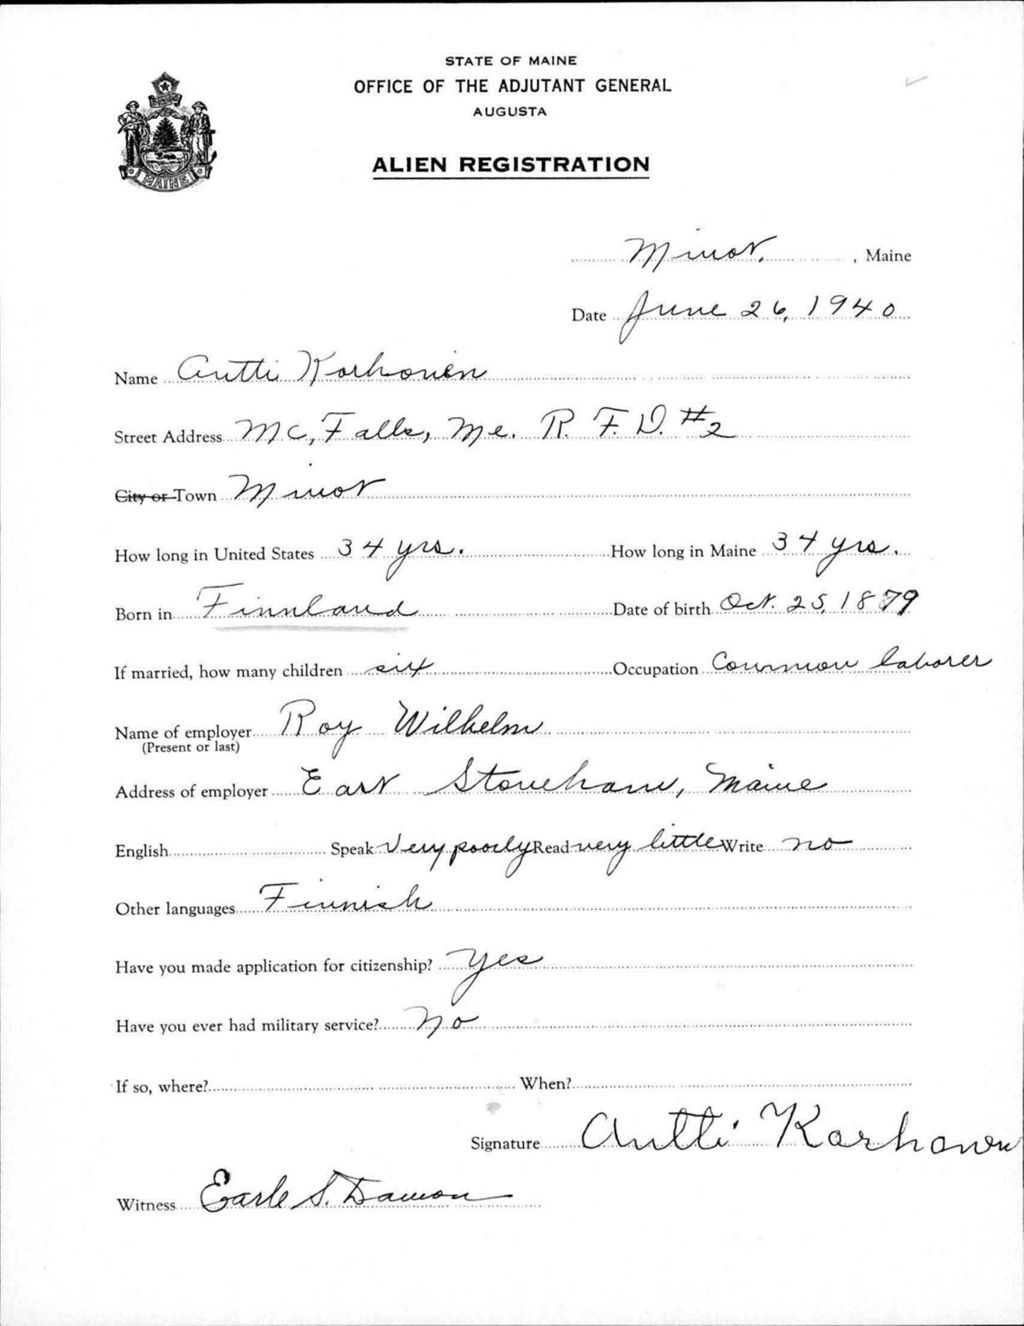 STATE OF MAINE
OFFICE OF THE ADJUTANT GENERAL
AUGUSTA
ALIEN REGISTRATION
MAINE
Minot, , Maine
Date June 26, 1940
Name Antti Korhonen
Street Address Mc, Falls, Me. R. F. D. #2
City or Town Minot
How long in United States 34 yrs. How long in Maine 34 yrs.
Born in Finnland Date of birth Oct. 25, 1879
If married, how many children six Occupation Common laborer
Name of employer Roy Wilhelm
(Present or last)
Address of employer East Stoneham, Maine
English Speak Very poorly Read very little Write no
Other languages Finnish
Have you made application for citizenship? Yes
Have you ever had military service? No
If so, where? When?
Signature Antti Korhonen
Witness Earle S. Damon